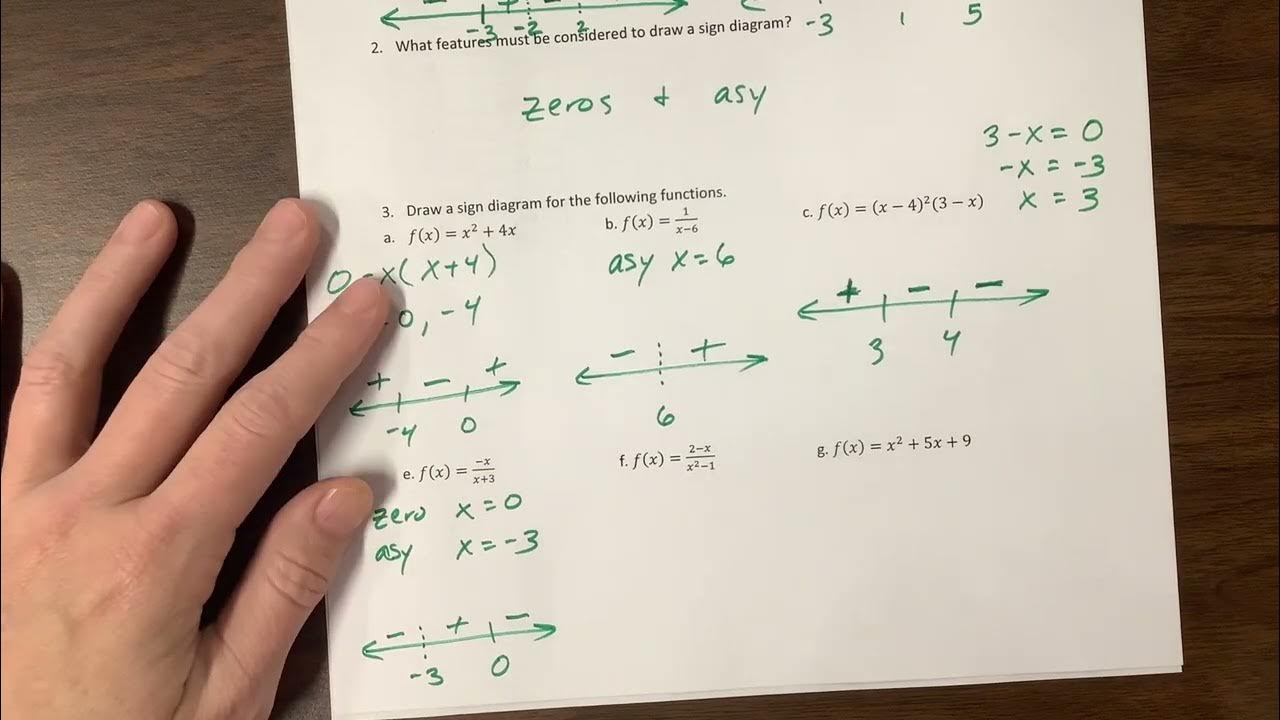 - + -3 -2 2
-3 1 5
2. What features must be considered to draw a sign diagram?
zeros + asy
3 - x = 0
-x = -3
x = 3
3. Draw a sign diagram for the following functions.
a. f(x) = x² + 4x
0 = x(x+4)
0, -4
+ - +
-4 0
b. f(x) = 1/(x-6)
asy x = 6
- +
6
c. f(x) = (x − 4)²(3 − x)
+ - -
3 4
e. f(x) = -x/(x+3)
zero x = 0
asy x = -3
- + -
-3 0
f. f(x) = (2-x)/(x²-1)
g. f(x) = x² + 5x + 9